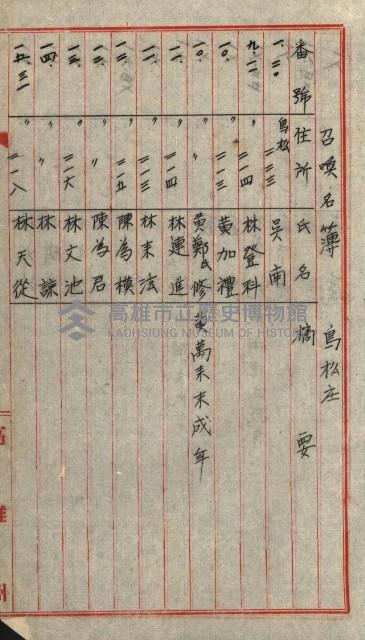 召喚名簿 鳥松庄
番號 住所 氏名 摘要
一、二〇 鳥松 二三三 吳南
九、二一 〃 二一四 林登科
一〇、 〃 二一三 黃加禮
一〇、 〃 〃 黃鄭氏修 黃萬来未成年
一一、 〃 二一四 林連進
一一、 〃 二一三 林来法
一二、 〃 二一五 陳為模
一三、 〃 〃 陳為君
一三、 〃 二二六 林文池
一四、 〃 〃 林諒
一五、三一 〃 二一八 林天從
高雄州
高雄市立歷史博物館
KAOHSIUNG MUSEUM OF HISTORY